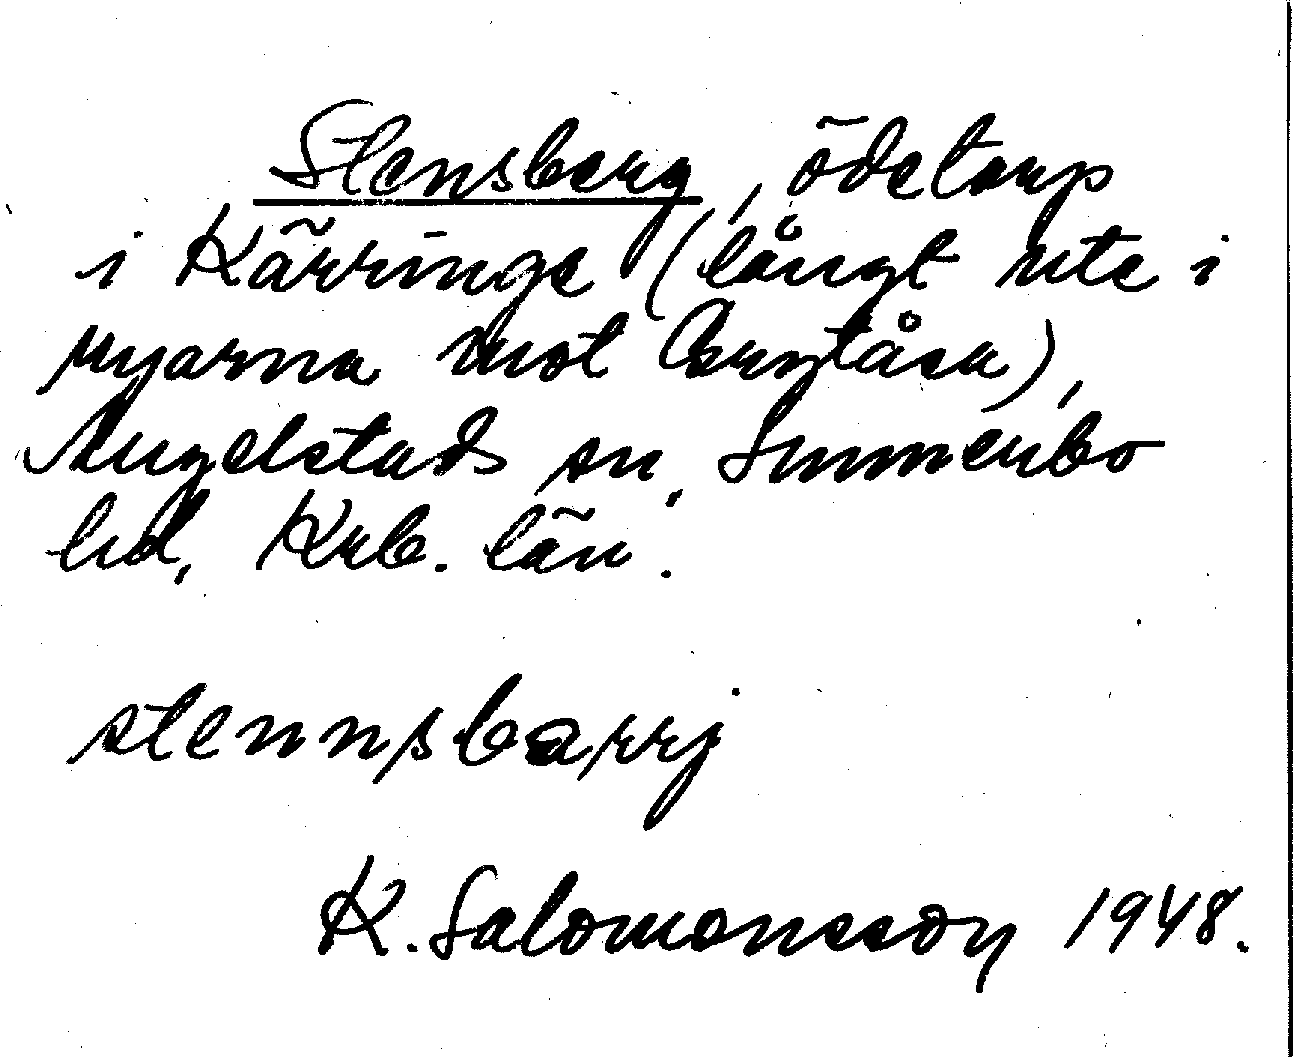 Stensberg, ödetorp
i Kärringe (långt ute i
myarna mot Bergtåsa),
Angelstads sn, Sunnerbo
hd, Krb. län.
stennsbarrj
K. Salomonsson 1948.